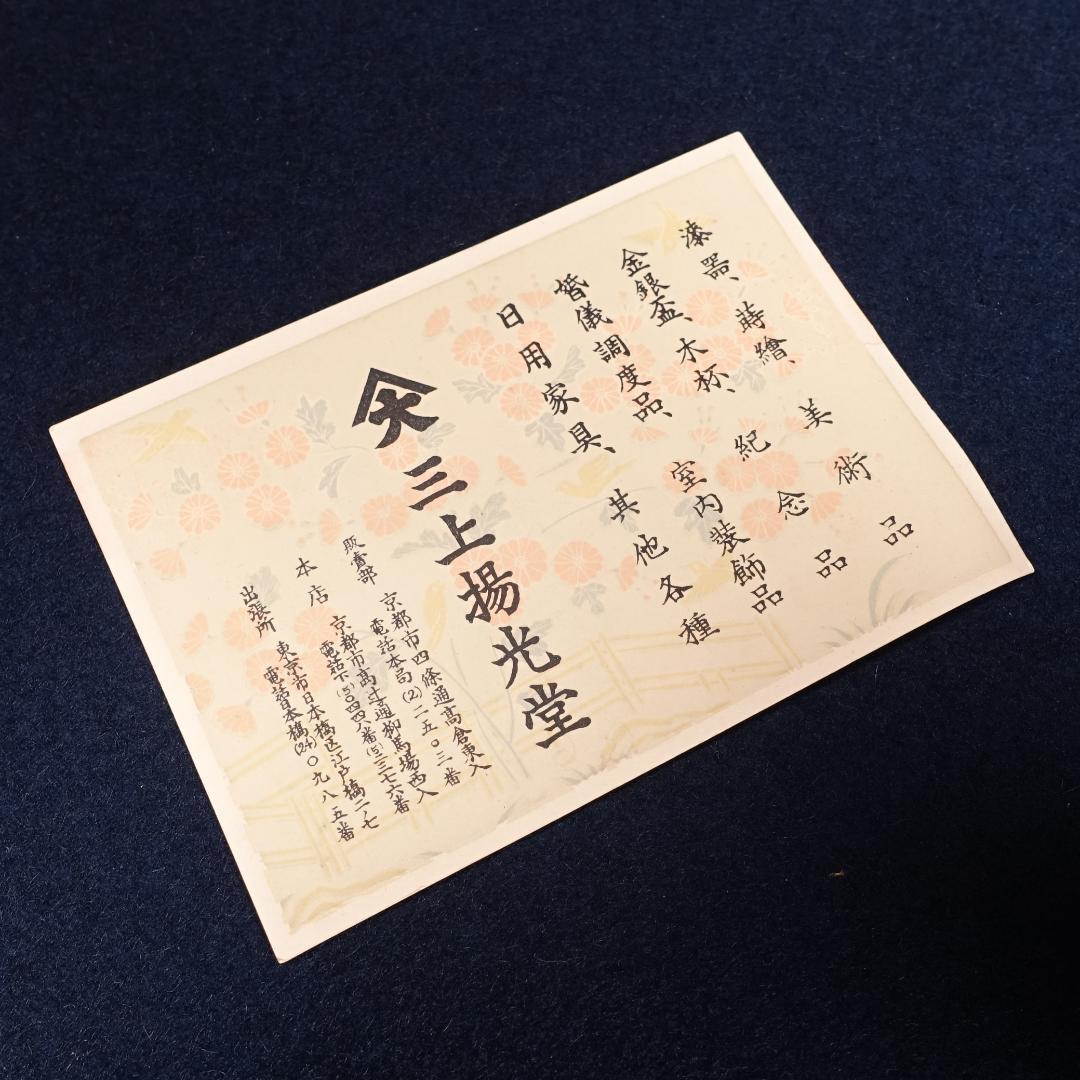 漆器、蒔繪、美術品
金銀盃、木杯、紀念品
婚儀調度品、室内装飾品
日用家具、其他各種
三上揚光堂
販賣部 京都市四條通高倉東入
電話本局(2)二五〇三番
本店 京都市高辻通柳馬場西入
電話下(5)〇四四八番(5)三三七六番
出張所 東京市日本橋区江戸橋二ノ七
電話日本橋(24)〇九八五番